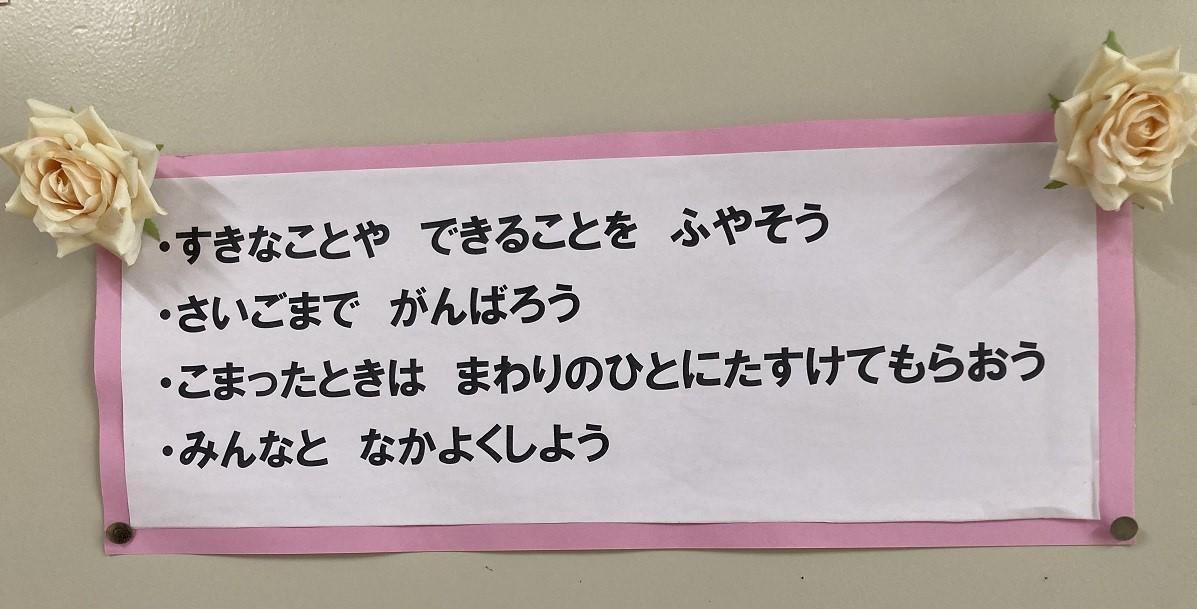 ・すきなことや　できることを　ふやそう
・さいごまで　がんばろう
・こまったときは　まわりのひとにたすけてもらおう
・みんなと　なかよくしよう